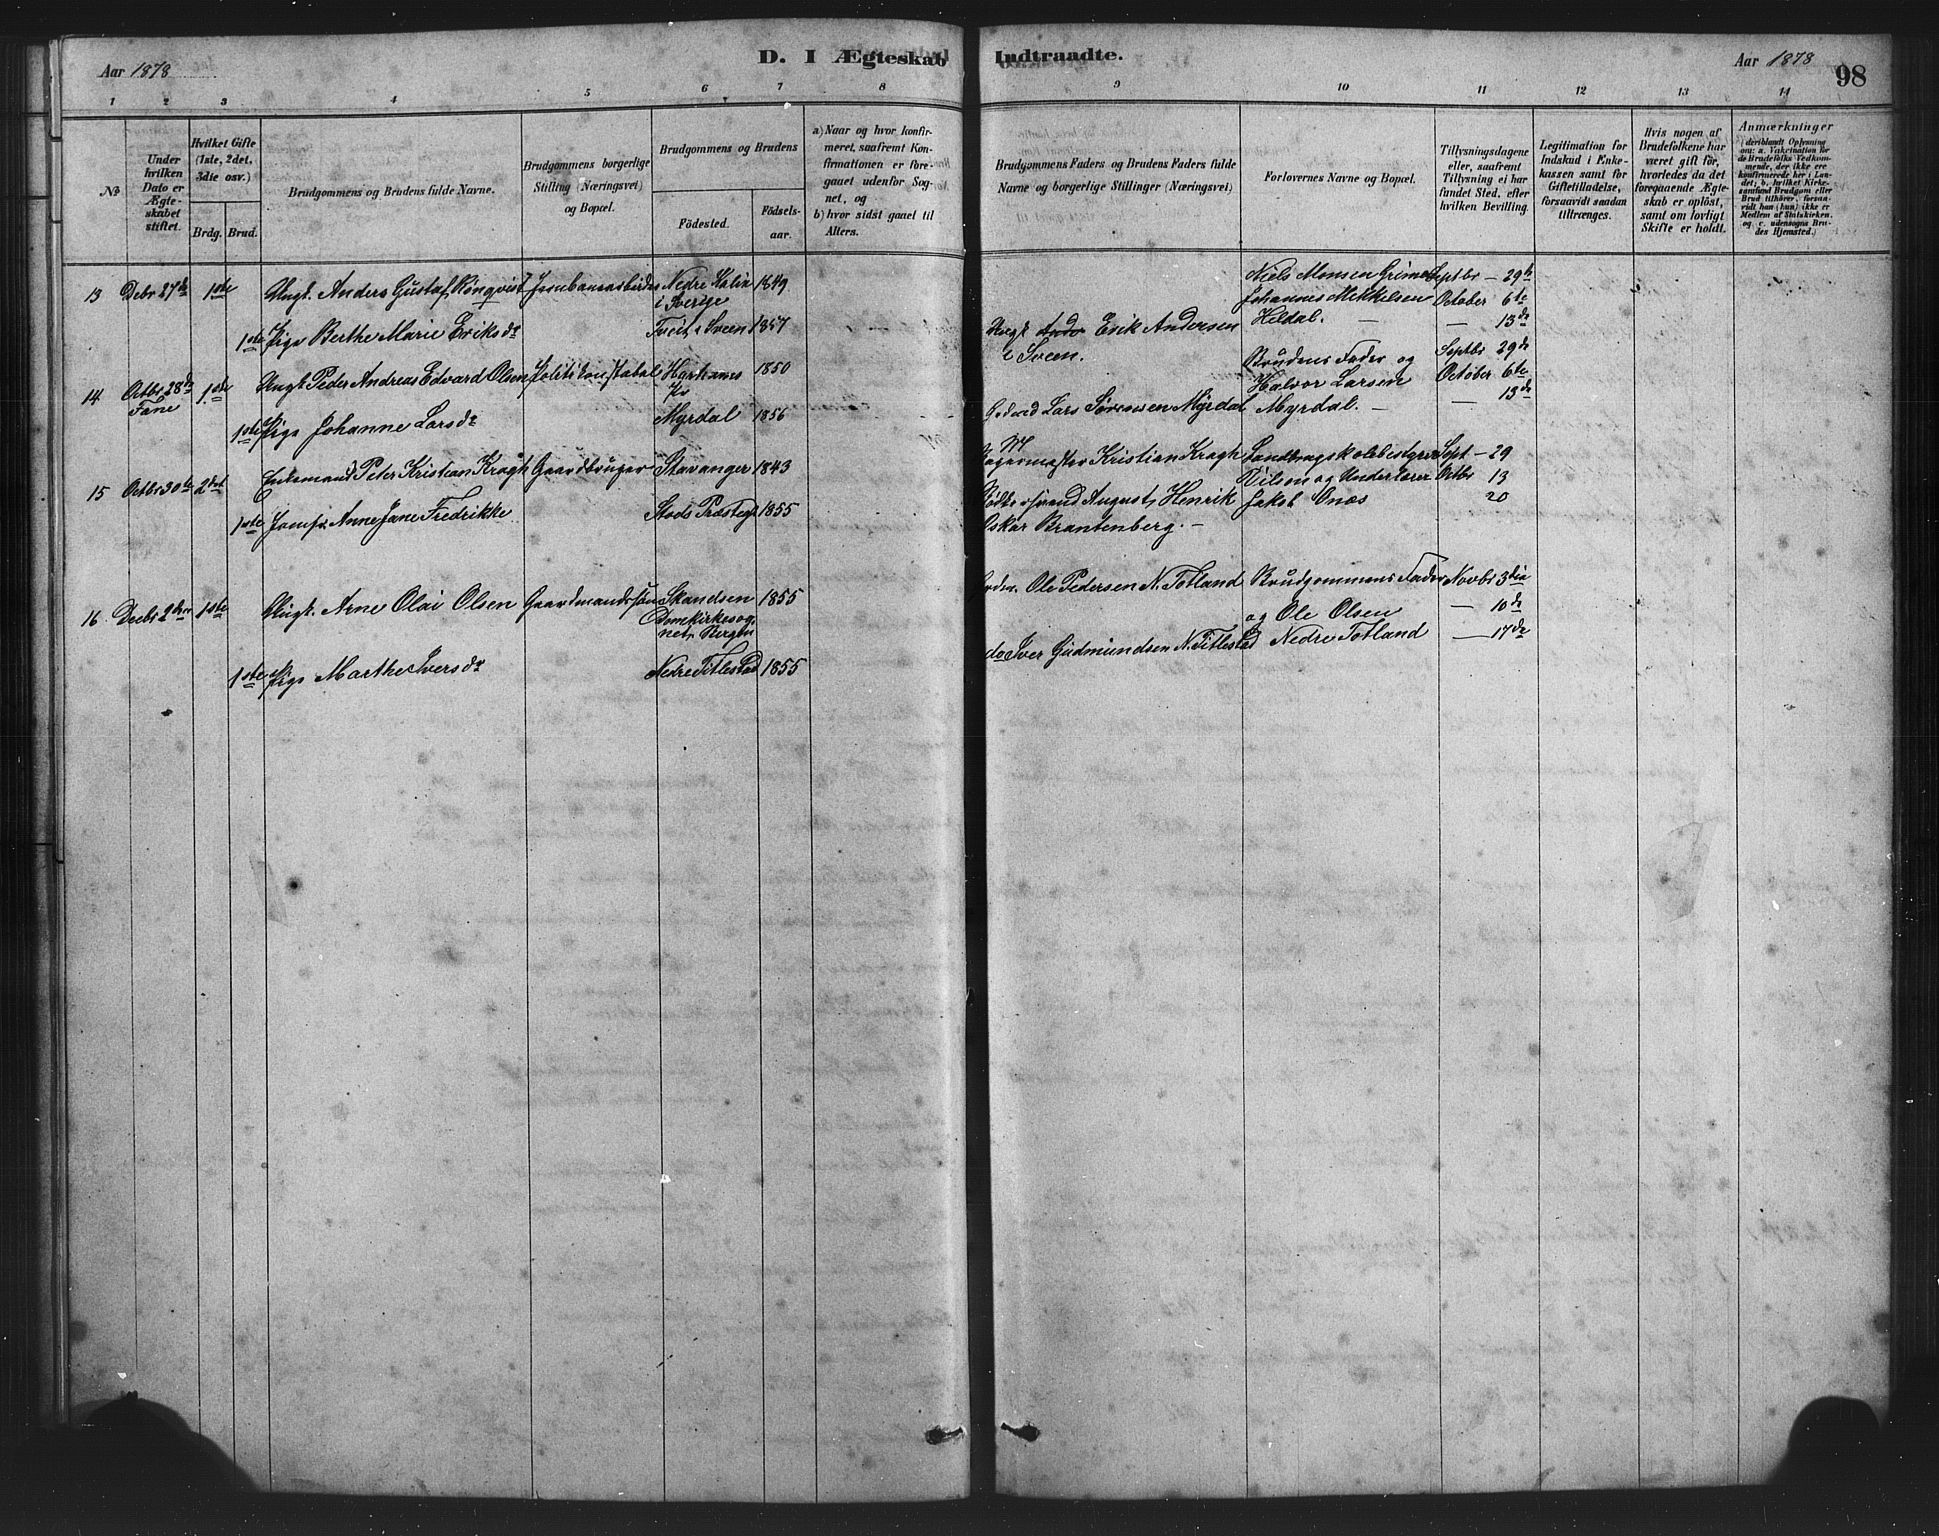 Aar 1878
D. I Ægteskab Indtraadte.
Aar 1878
98
1 2 3 4 5 6 7 8 9 10 11 12 13 14
No
Under hvilken Dato er Ægteskabet stiftet.
Hvilket Gifte (1ste, 2det, 3die osv.)
Brdg. Brud.
Brudgommens og Brudens fulde Navne.
Brudgommens borgerlige Stilling (Næringsvei) og Bopæl.
Brudgommens og Brudens
Födested.
Födselsaar.
a) Naar og hvor konfirmeret, saafremt Konfirmationen er foregaaet udenfor Sognet, og
b) hvor sidst gaaet til Alters.
Brudgommens Faders og Brudens Faders fulde Navne og borgerlige Stillinger (Næringsvei).
Forlovernes Navne og Bopæl.
Tillysningsdagene eller, saafremt Tillysning ei har fundet Sted, efter hvilken Bevilling.
Legitimation for Indskud i Enkekassen samt for Giftetilladelse, forsaavidt saadan tiltrænges.
Hvis nogen af Brudefolkene har været gift för, hvorledes da det foregaaende Ægteskab er oplöst, samt om lovligt Skifte er holdt.
Anmærkninger (deriblandt Oplysning om: a. Vakcination for de Brudefolks Vedkommende, der ikke ere konfirmerede her i Landet; b. hvilket Kirkesamfund Brudgom eller Brud tilhörer, forsaavidt han (hun) ikke er Medlem af Statskirken, og c. udensogns Brudes Hjemsted.)
13 27de 1ste Ungk. Anders Gustaf Rönqvist Nedre 1849 Niels Monsen Septbr — 29de
i Sverige Johannes Mikkelsen October 6te
1ste Pige Berthe Marie Eriksdr Tveit i Sveen 1857 Erik Andersen Heldal. — — 13de
i Sveen.
14 Octbr 28de 1ste Ungk. Peder Andreas Edvard Olsen Politikonstabel 1850 Brudens Fader og Septbr 29de
Fane Halvor Larsen October 6te
1ste Pige Johanne Larsdr Myrdal 1856 Lars Sörensen Myrdal Myrdal. — — 13de
15 Octbr 30te 2det Enkemand Peter Kristian Kragh Gaardbruger Stavanger 1843 Kristian Kragh Sept — 29
Nilsen og Underlærer Octbr 13
1ste Jomfr. Anne Jane Fredrikke Stods Præstegj. 1855 August Henrik Jakob Onæs 20
Oskar Brantenberg. —
16 Decbr 2den 1ste Ungk. Arne Olai Olsen Gaardmandssön Skandsen 1855 Ole Pedersen N. Totland Brudgommens Fader Novbr 3die
Domkirkesognet, Bergen og Ole Olsen — 10de
1ste Pige Marthe Iversdr Nedre Titlestad 1855 do Iver Gudmundsen N. Titlestad Nedre Totland — 17de